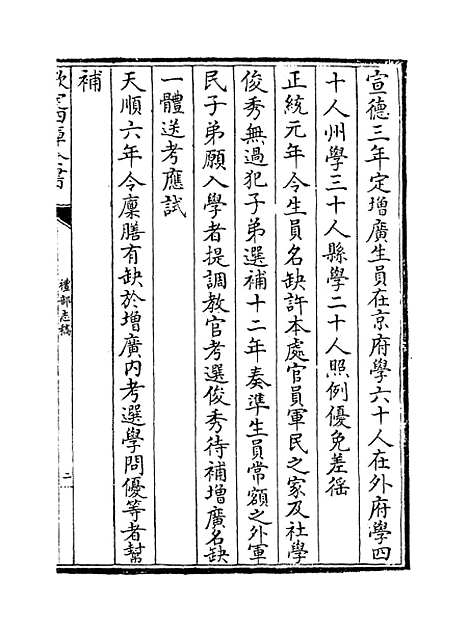 宣德三年定增廣生員在京府學六十人在外府學四
十人州學三十人縣學二十人照例優免差徭
正統元年令生員名缺許本處官員軍民之家及社學
俊秀無過犯子弟選補十二年奏準生員常額之外軍
民子弟願入學者提調教官考選俊秀待補增廣名缺
一體送考應試
天順六年令廩膳有缺於增廣內考選學問優等者幫
補
欽定四庫全書
禮部志稿
二